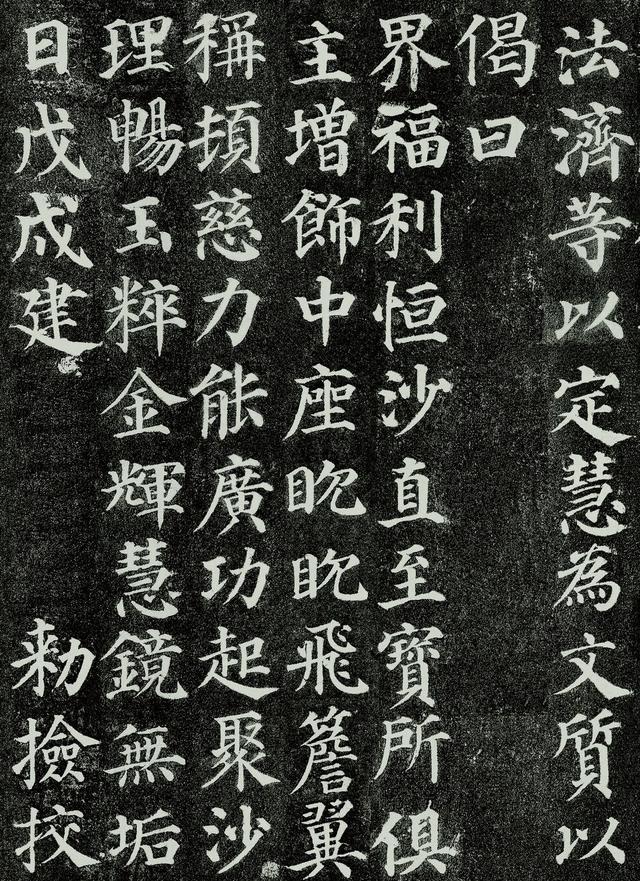 法濟等以定慧為文質以
偈曰
界福利恒沙直至寶所俱
主增飾中座眈眈飛簷翼
稱頓慈力能廣功起聚沙
理暢玉粹金輝慧鏡無垢
日戊戌建　勑撿挍